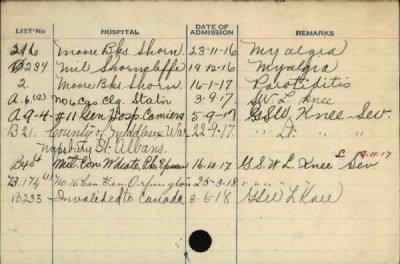 LIST NO HOSPITAL DATE OF ADMISSION REMARKS
216 Moore Bks. Shorn. 23-11-16 Myalgia
B234 Mil Shorncliffe 19-12-16 Myalgia
2. Moore Bks. Shorn. 16-1-17 Parotiditis
A.6.(2) No 6 Cas Clg. Statn 3-9-17 S.W. L. Knee
A 9-4 #11 Gen Hosp. Camiers 5-9-17 GSW Knee Sev.
B21. County of Middlesex War 22-9-17 " Lt. "
Napsbury St. Albans.
B40 Mil. Con Wdcote Pk. Epsom 16-10-17 G.S.W L. Knee Sev 9.11.17
B.174 No 16 Can. Gen. Orpington 25-3-18 " " " "
B233 Invalided to Canada 3-6-18 GSW L Knee